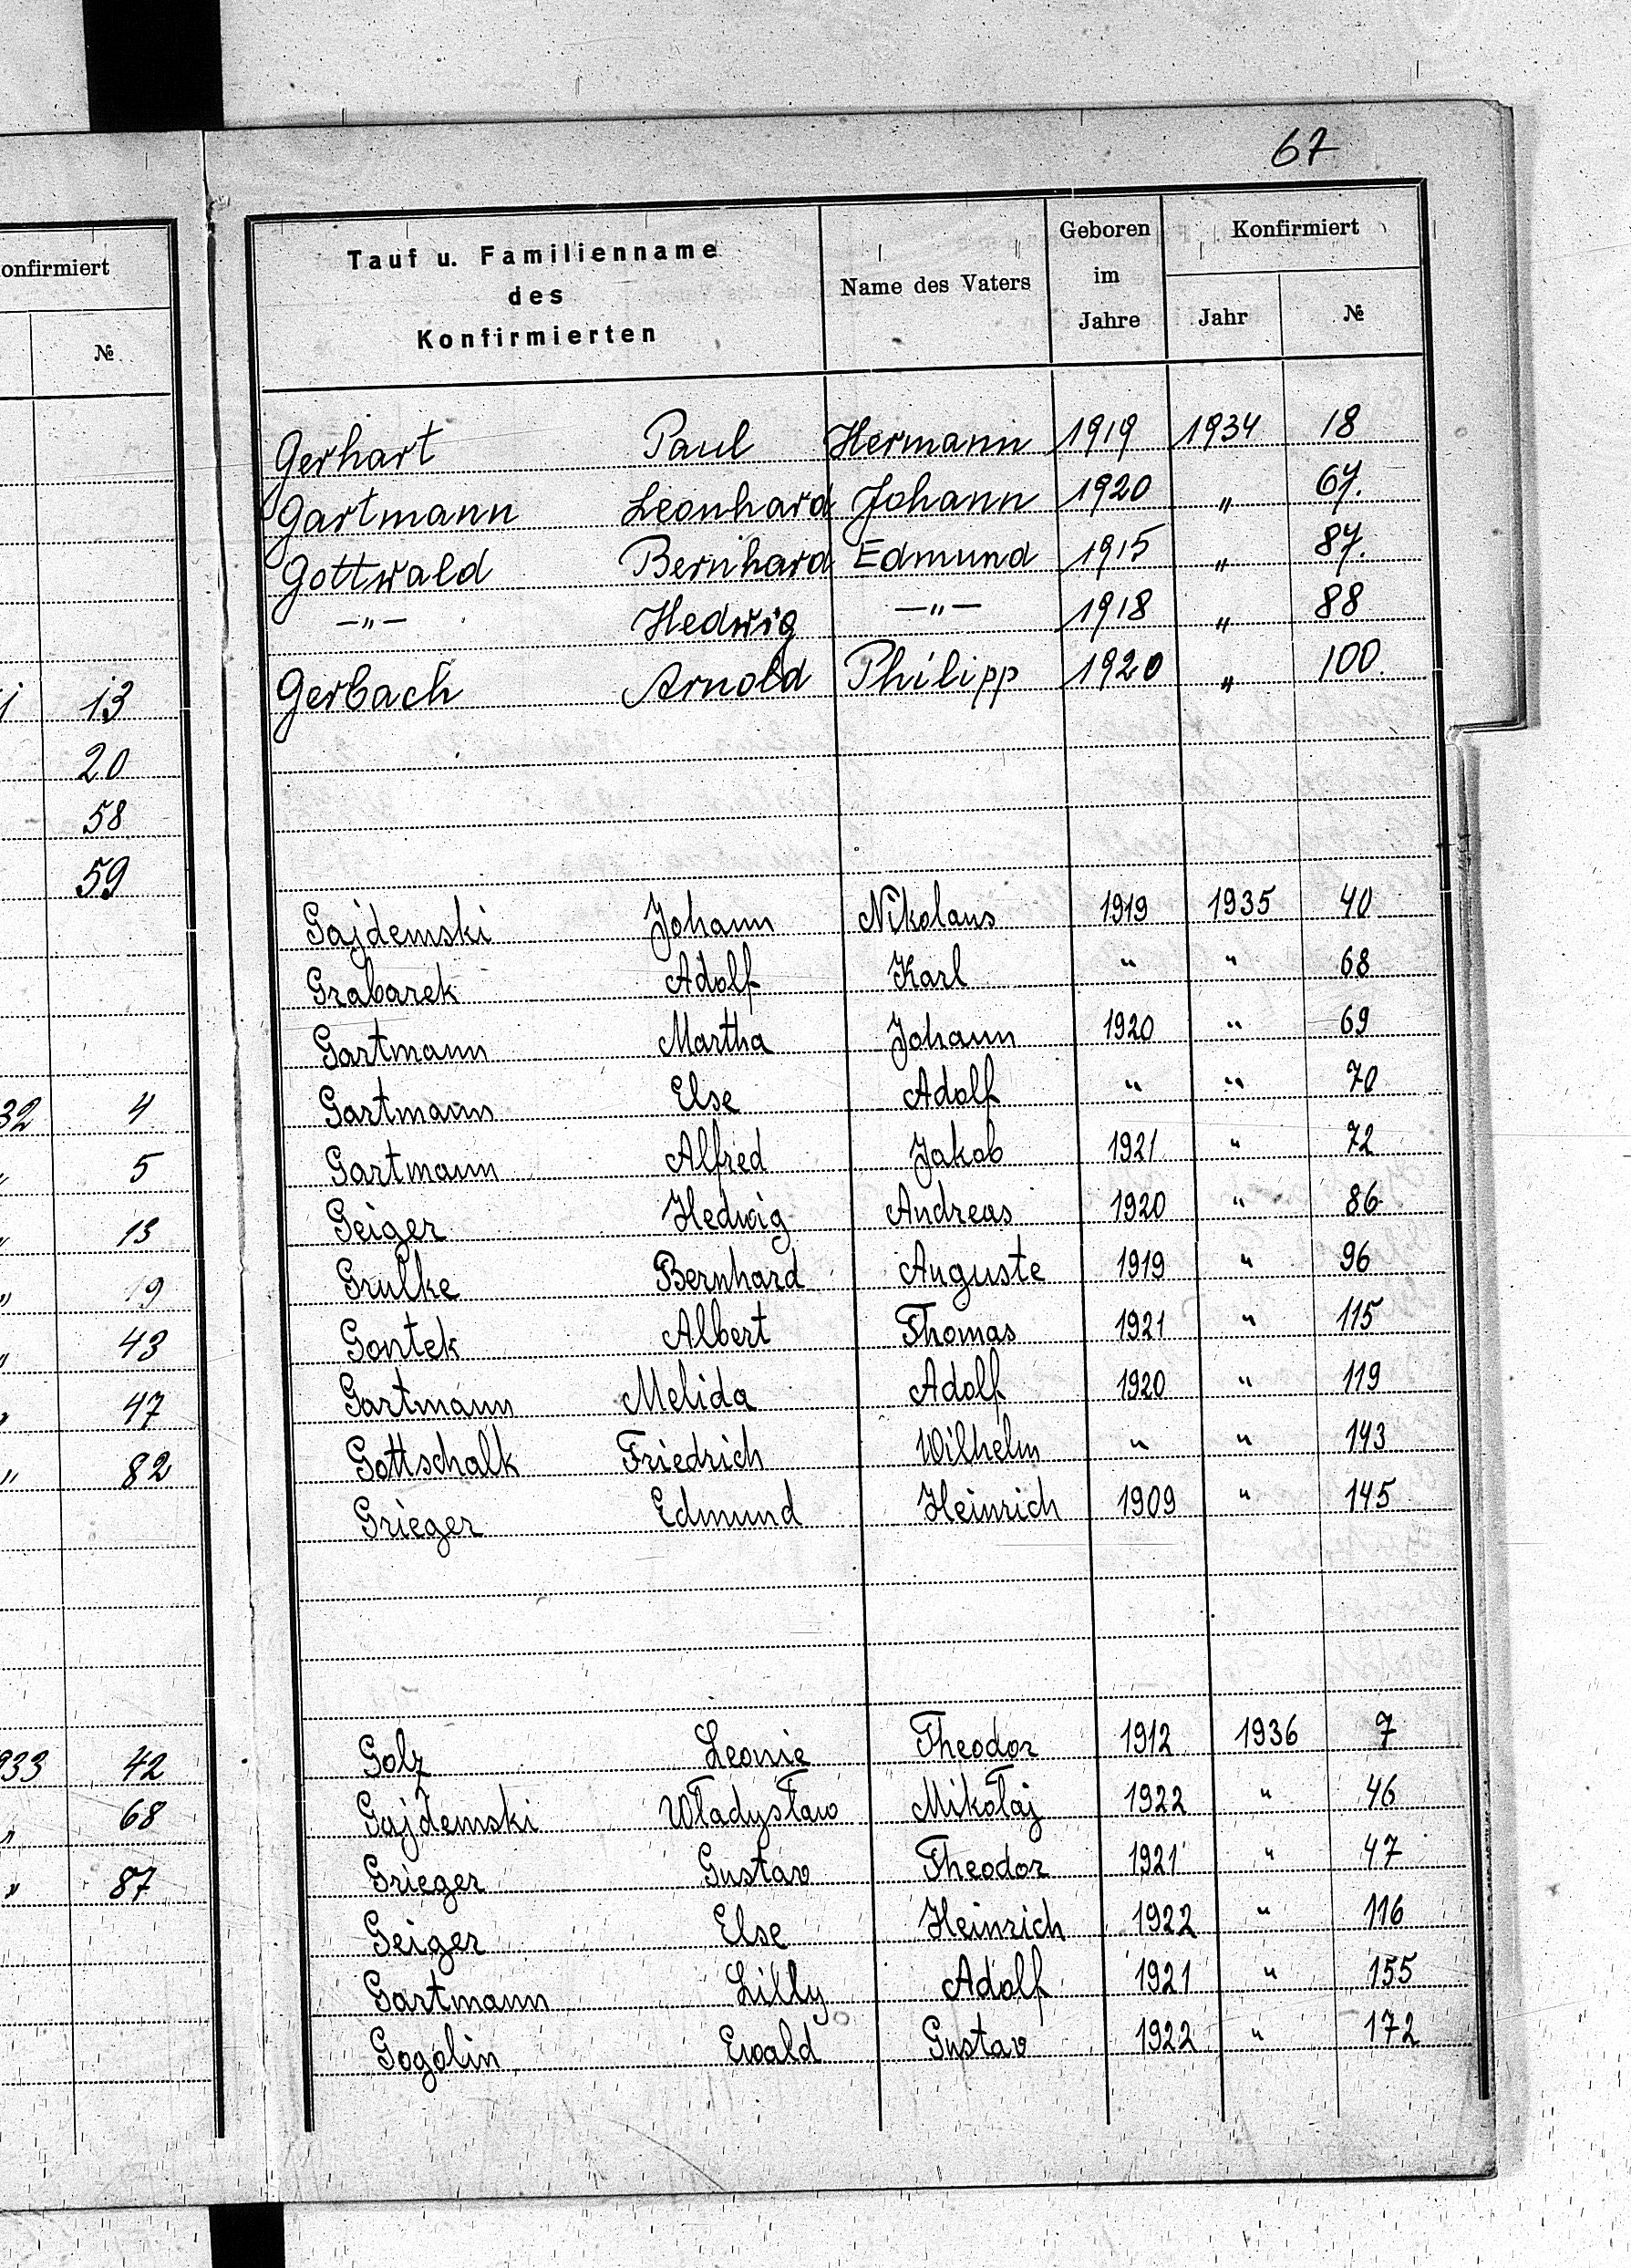 67
onfirmiert
№
13
20
58
59
32 4
" 5
" 13
" 19
" 43
" 47
" 82
933 42
" 68
" 87
Tauf u. Familienname
des
Konfirmierten
Name des Vaters
Geboren
im
Jahre
Konfirmiert
Jahr
№
Gerhart Paul Hermann 1919 1934 18
Gartmann Leonhard Johann 1920 " 67.
Gottwald Bernhard Edmund 1915 " 87.
—"— Hedwig —"— 1918 " 88
Gerbach Arnold Philipp 1920 " 100.
Gajdemski Johann Nikolaus 1919 1935 40
Grabarek Adolf Karl " " 68
Gartmann Martha Johann 1920 " 69
Gartmann Else Adolf " " 70
Gartmann Alfred Jakob 1921 " 72
Geiger Hedwig Andreas 1920 " 86
Grulke Bernhard Auguste 1919 " 96
Gontek Albert Thomas 1921 " 115
Gartmann Melida Adolf 1920 " 119
Gottschalk Friedrich Wilhelm " " 143
Grieger Edmund Heinrich 1909 " 145
Golz Leonie Theodor 1912 1936 7
Gajdemski Władysław Mikołaj 1922 " 46
Grieger Gustav Theodor 1921 " 47
Geiger Else Heinrich 1922 " 116
Gartmann Lilly Adolf 1921 " 155
Gogolin Ewald Gustav 1922 " 172